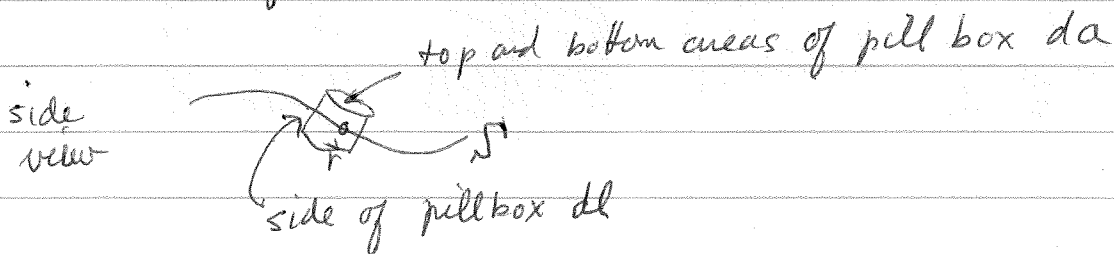 top and bottom areas of pill box da
side
view
r
S
side of pillbox dl